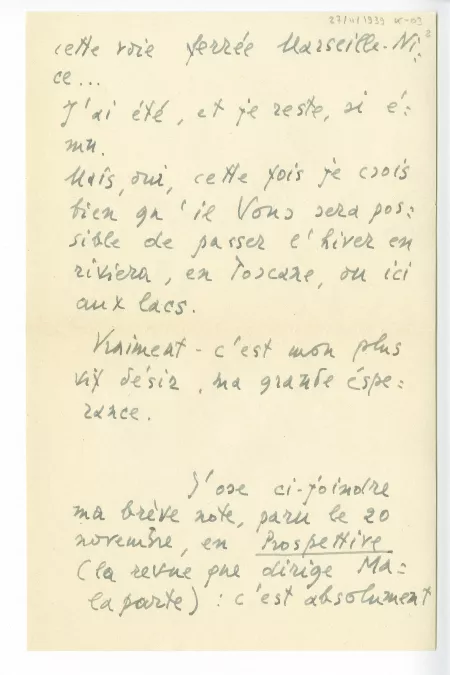 27/11/1939 K-09
2
cette voie ferrée Marseille-Ni:
ce...
J'ai été, et je reste, si é:
mu.
Mais, oui, cette fois je crois
bien qu'il Vous sera pos:
sible de passer l'hiver en
riviera, en Toscane, ou ici
aux lacs.
Vraiment - c'est mon plus
vif désir, ma grande éspe:
rance.
J'ose ci-joindre
ma brève note, paru le 20
novembre, en Prospettive
(la revue que dirige Ma=
laparte) : c'est absolument